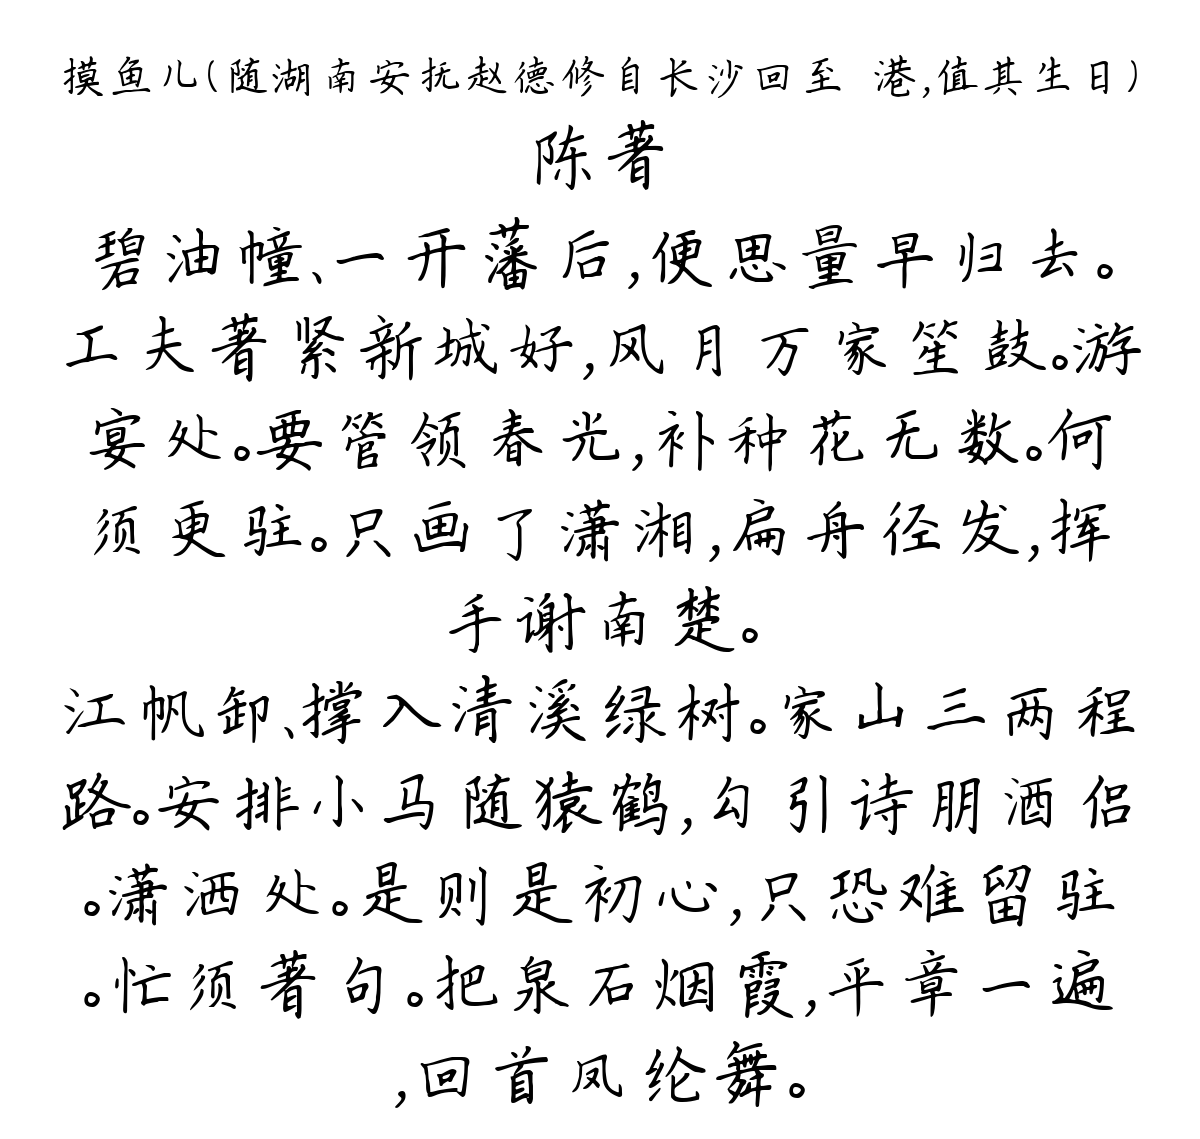 摸鱼儿(随湖南安抚赵德修自长沙回至 港,值其生日)
陈著
碧油幢、一开藩后,便思量早归去。
工夫著紧新城好,风月万家笙鼓。游
宴处。要管领春光,补种花无数。何
须更驻。只画了潇湘,扁舟径发,挥
手谢南楚。
江帆卸、撑入清溪绿树。家山三两程
路。安排小马随猿鹤,勾引诗朋酒侣
。潇洒处。是则是初心,只恐难留驻
。忙须著句。把泉石烟霞,平章一遍
,回首凤纶舞。